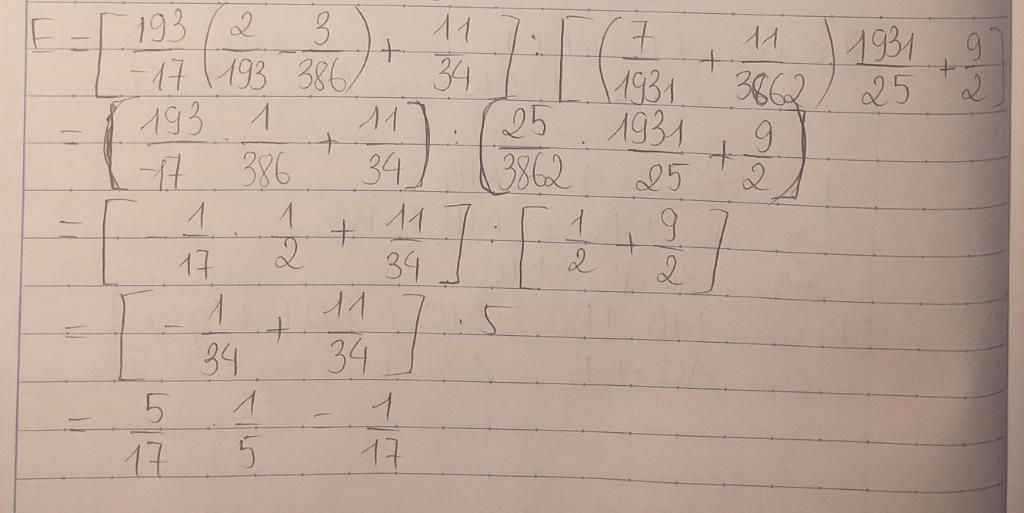 E = [ 193/-17 ( 2/193 - 3/386 ) + 11/34 ] : [ ( 7/1931 + 11/3862 ) 1931/25 + 9/2 ]
= ( 193/-17 · 1/386 + 11/34 ) : ( 25/3862 · 1931/25 + 9/2 )
= [ - 1/17 · 1/2 + 11/34 ] : [ 1/2 + 9/2 ]
= [ - 1/34 + 11/34 ] : 5
= 5/17 · 1/5 = 1/17